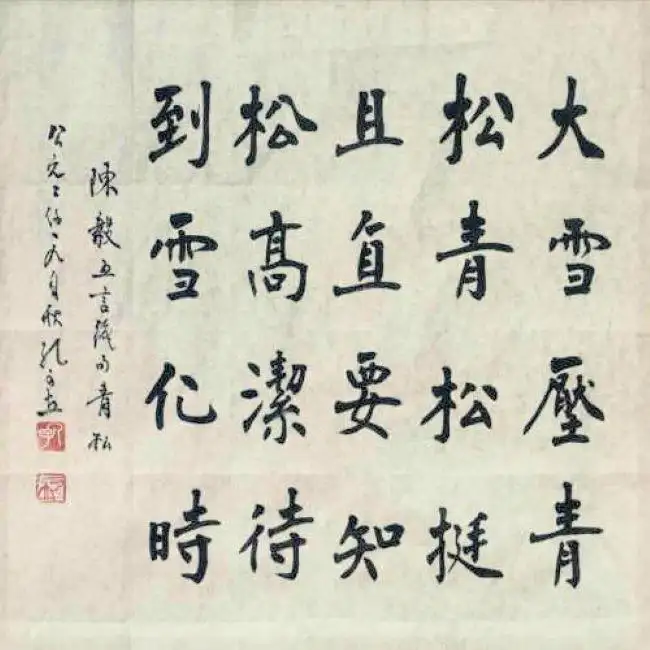 大雪壓青
松青松挺
且直要知
松高潔待
到雪化時
陳毅五言絕句青松
公元二仟一九月秋